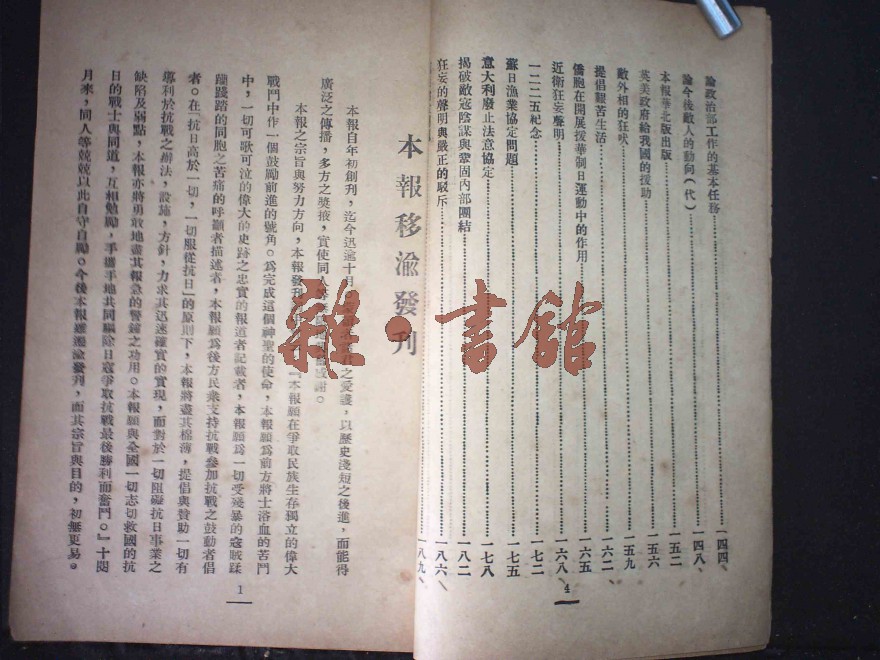 論政治部工作的基本任務 一四四
論今後敵人的動向(代) 一四八
本報華北版出版 一五二
英美政府給我國的援助 一五六
敵外相的狂吠 一五九
提倡艱苦生活 一六二
僑胞在開展援華制日運動中的作用 一六五
近衛狂妄聲明 一六八
一二二五紀念 一七二
蘇日漁業協定問題 一七五
意大利廢止法意協定 一七八
揭破敵寇陰謀與鞏固內部團結 一八二
狂妄的聲明與嚴正的駁斥 一八六
一八九
4
本報移渝發刊
本報自年初創刊,迄今迅逾十月,之愛護,以歷史淺短之後進,而能得
廣泛之傳播,多方之獎掖,實使同人等感謝。
本報之宗旨與努力方向,本報發刊『本報願在爭取民族生存獨立的偉大
戰鬥中作一個鼓勵前進的號角。爲完成這個神聖的使命,本報願爲前方將士浴血的苦鬥
中,一切可歌可泣的偉大的史跡之忠實的報道者記載者,本報願爲一切受殘暴的寇賊蹂
躪踐踏的同胞之苦痛的呼籲者描述者,本報願爲後方民衆支持抗戰參加抗戰之鼓動者倡
者。在「抗日高於一切,一切服從抗日」的原則下,本報將盡其棉薄,提倡與贊助一切有
專利於抗戰之辦法,設施,方針,力求其迅速確實的實現,而對於一切阻礙抗日事業之
缺陷及弱點,本報亦將勇敢地盡其報急的警鐘之功用。本報願與全國一切志切救國的抗
日的戰士與同道,互相勉勵,手攜手地共同驅除日寇爭取抗戰最後勝利而奮鬥。』十閱
月來,同人等兢兢以此自守自勵。今後本報雖遷渝發刊,而其宗旨與目的,初無更易。
1
雜·書館